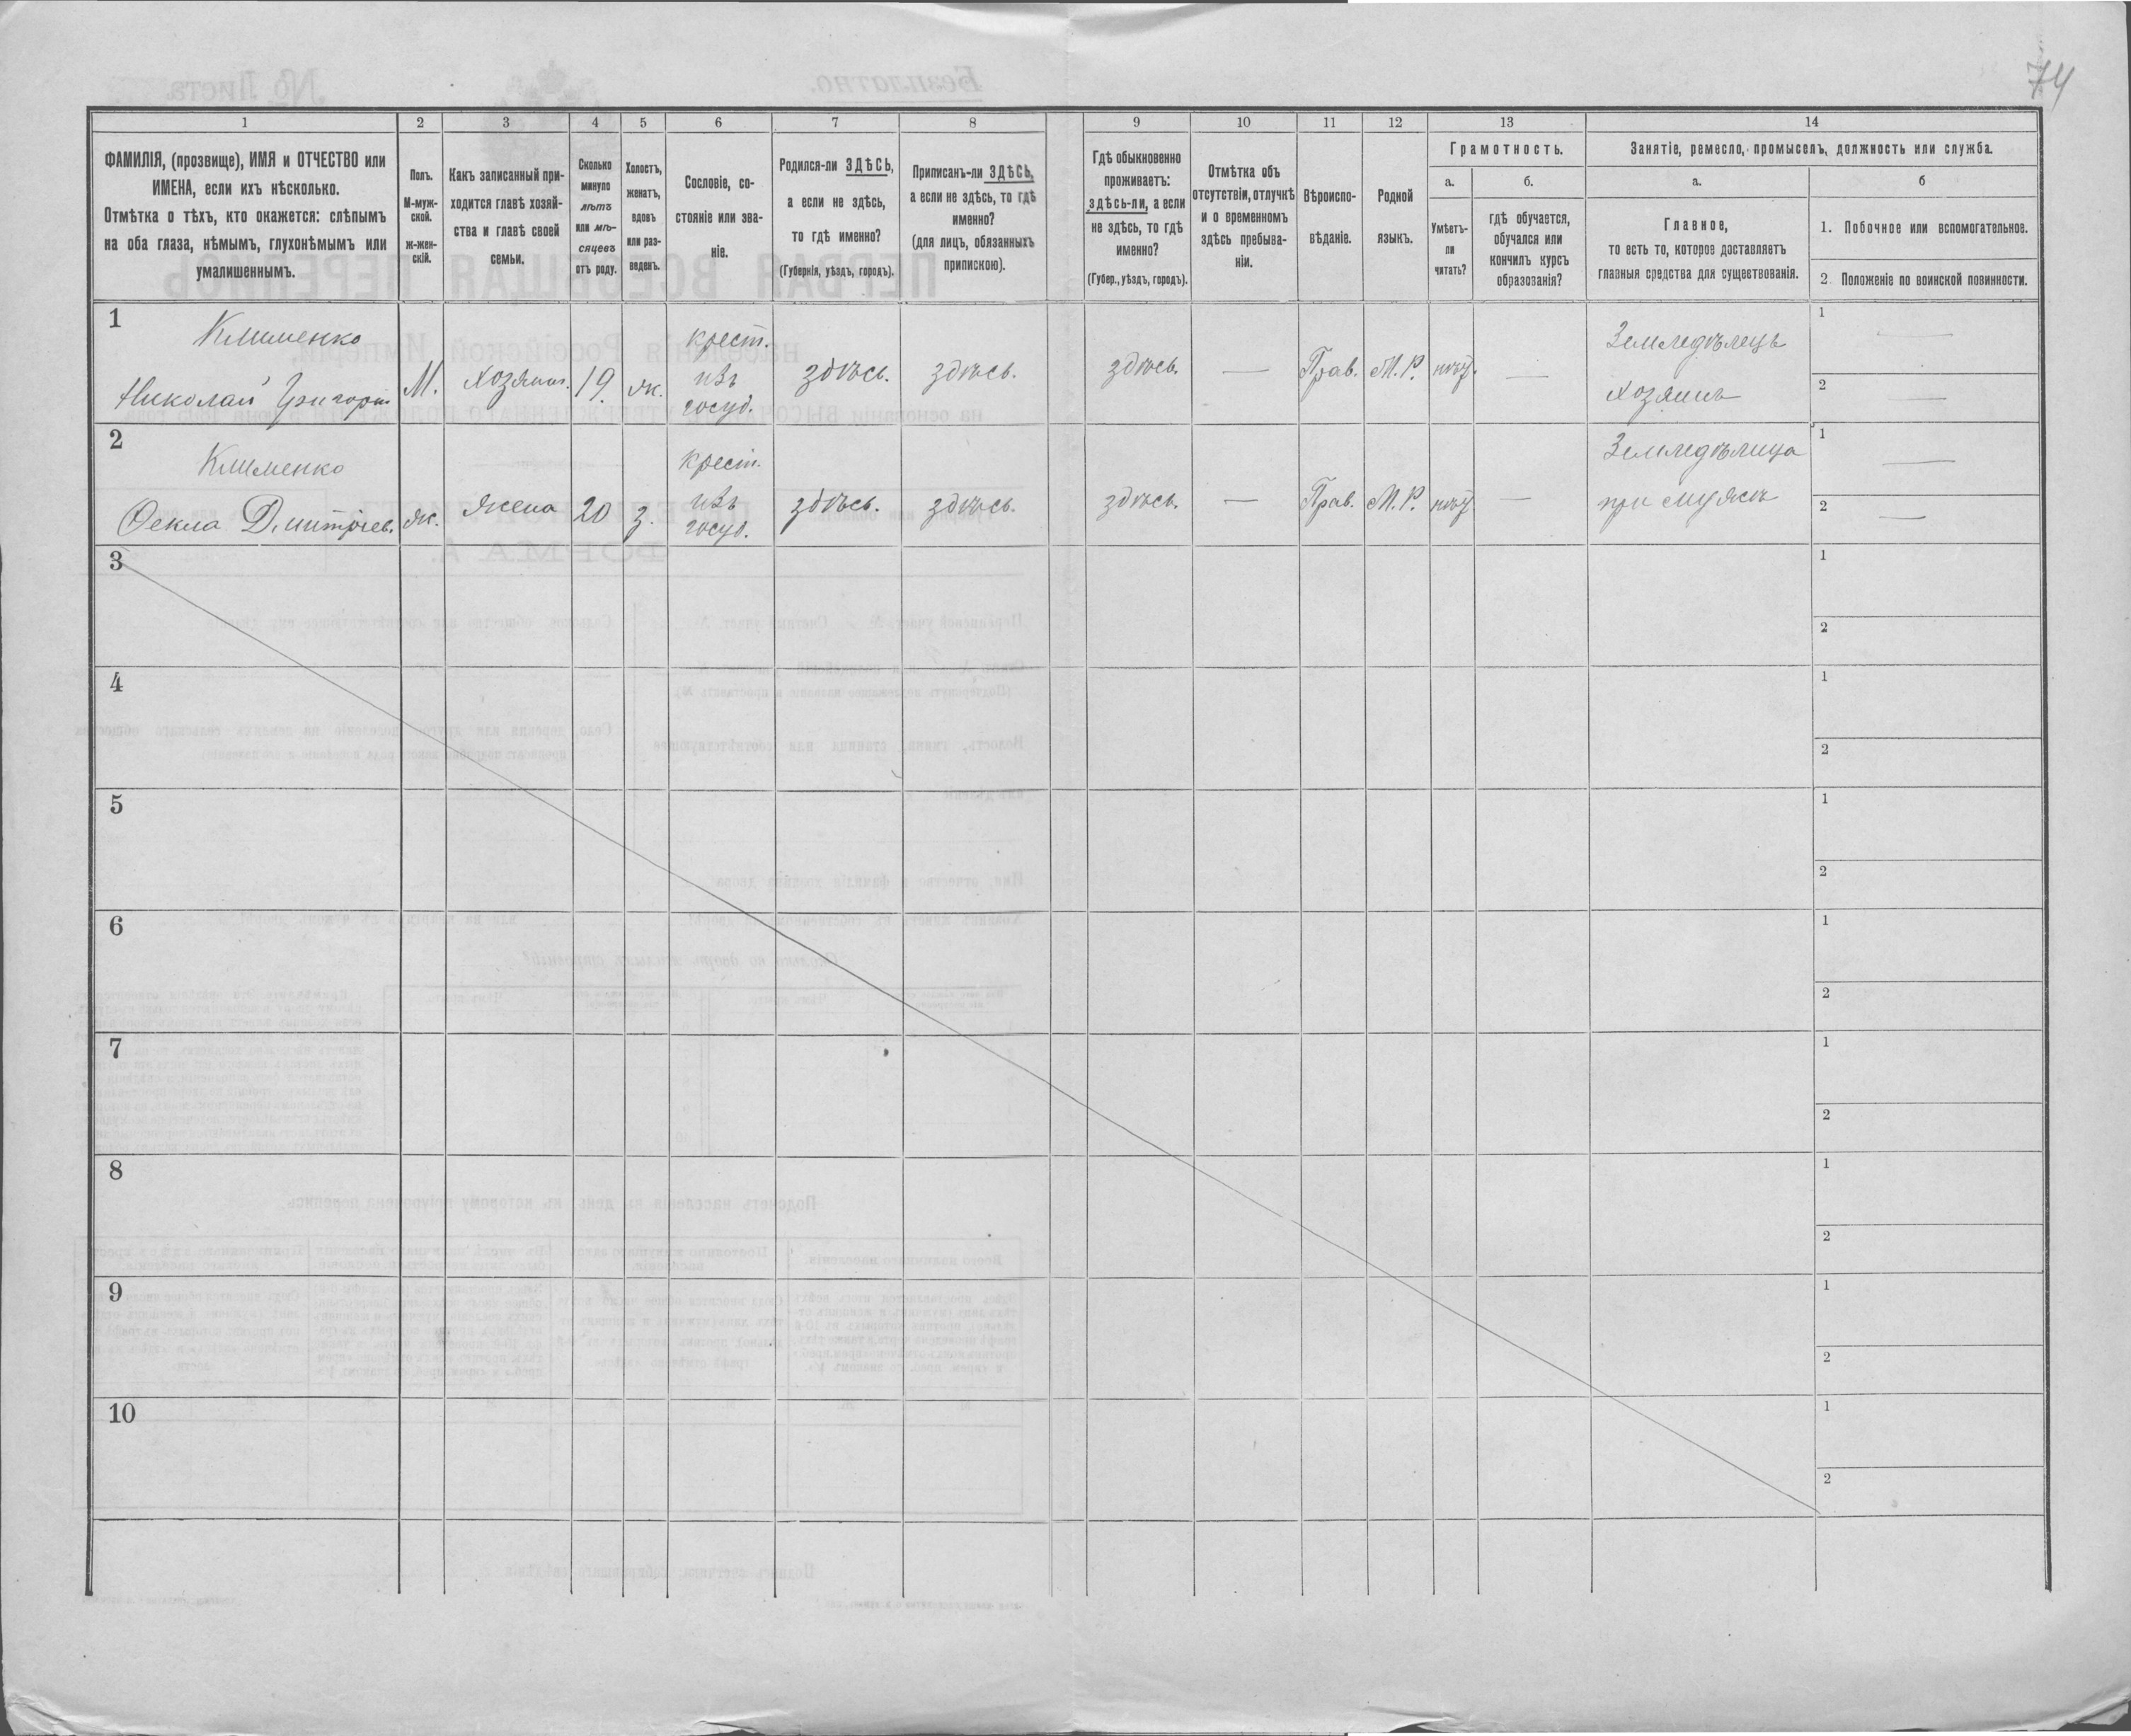 74
1 2 3 4 5 6 7 8 9 10 11 12 13 14
ФАМИЛІЯ, (прозвище), ИМЯ и ОТЧЕСТВО или
ИМЕНА, если ихъ нѣсколько.
Отмѣтка о тѣхъ, кто окажется: слѣпымъ
на оба глаза, нѣмымъ, глухонѣмымъ или
умалишеннымъ.
Полъ.
М-муж-
ской.
ж-жен-
скій.
Какъ записанный при-
ходится главѣ хозяй-
ства и главѣ своей
семьи.
Сколько
минуло
лѣтъ
или мѣ-
сяцевъ
отъ роду.
Холостъ,
женатъ,
вдовъ
или раз-
веденъ.
Сословіе, со-
стояніе или зва-
ніе.
Родился-ли ЗДѢСЬ,
а если не здѣсь,
то гдѣ именно?
(Губернія, уѣздъ, городъ).
Приписанъ-ли ЗДѢСЬ,
а если не здѣсь, то гдѣ
именно?
(для лицъ, обязанныхъ
припискою).
Гдѣ обыкновенно
проживаетъ:
здѣсь-ли, а если
не здѣсь, то гдѣ
именно?
(Губер., уѣздъ, городъ).
Отмѣтка объ
отсутствіи, отлучкѣ
и о временномъ
здѣсь пребыва-
ніи.
Вѣроиспо-
вѣданіе.
Родной
языкъ.
Грамотность.
а.
Умѣетъ-
ли
читать?
б.
гдѣ обучается,
обучался или
кончилъ курсъ
образованія?
Занятіе, ремесло, промыселъ, должность или служба.
а.
Главное,
то есть то, которое доставляетъ
главныя средства для существованія.
б
1. Побочное или вспомогательное.
2. Положеніе по воинской повинности.
1
Клименко
Николай Григорьи
М.
хозяинъ.
19.
ж.
крест.
изъ
госуд.
здѣсь.
здѣсь.
здѣсь.
—
Прав.
М. Р.
—
Земледѣлецъ
хозяинъ
1 —
2 —
2
Клименко
Өекла Дмитріев.
ж.
жена
20
з.
крест.
изъ
госуд.
здѣсь.
здѣсь.
здѣсь.
—
Прав.
М. Р.
—
Земледѣлица
при мужѣ
1 —
2 —
3
1
2
4
1
2
5
1
2
6
1
2
7
1
2
8
1
2
9
1
2
10
1
2